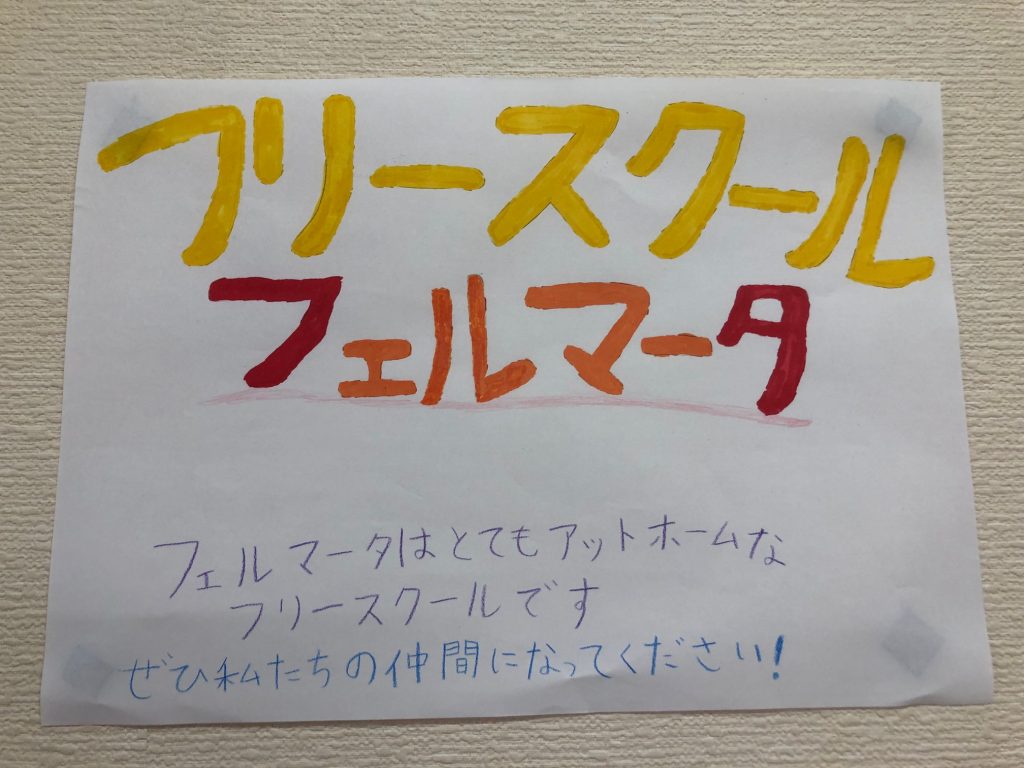 フリースクール
フェルマータ
フェルマータはとてもアットホームな
フリースクールです
ぜひ私たちの仲間になってください!